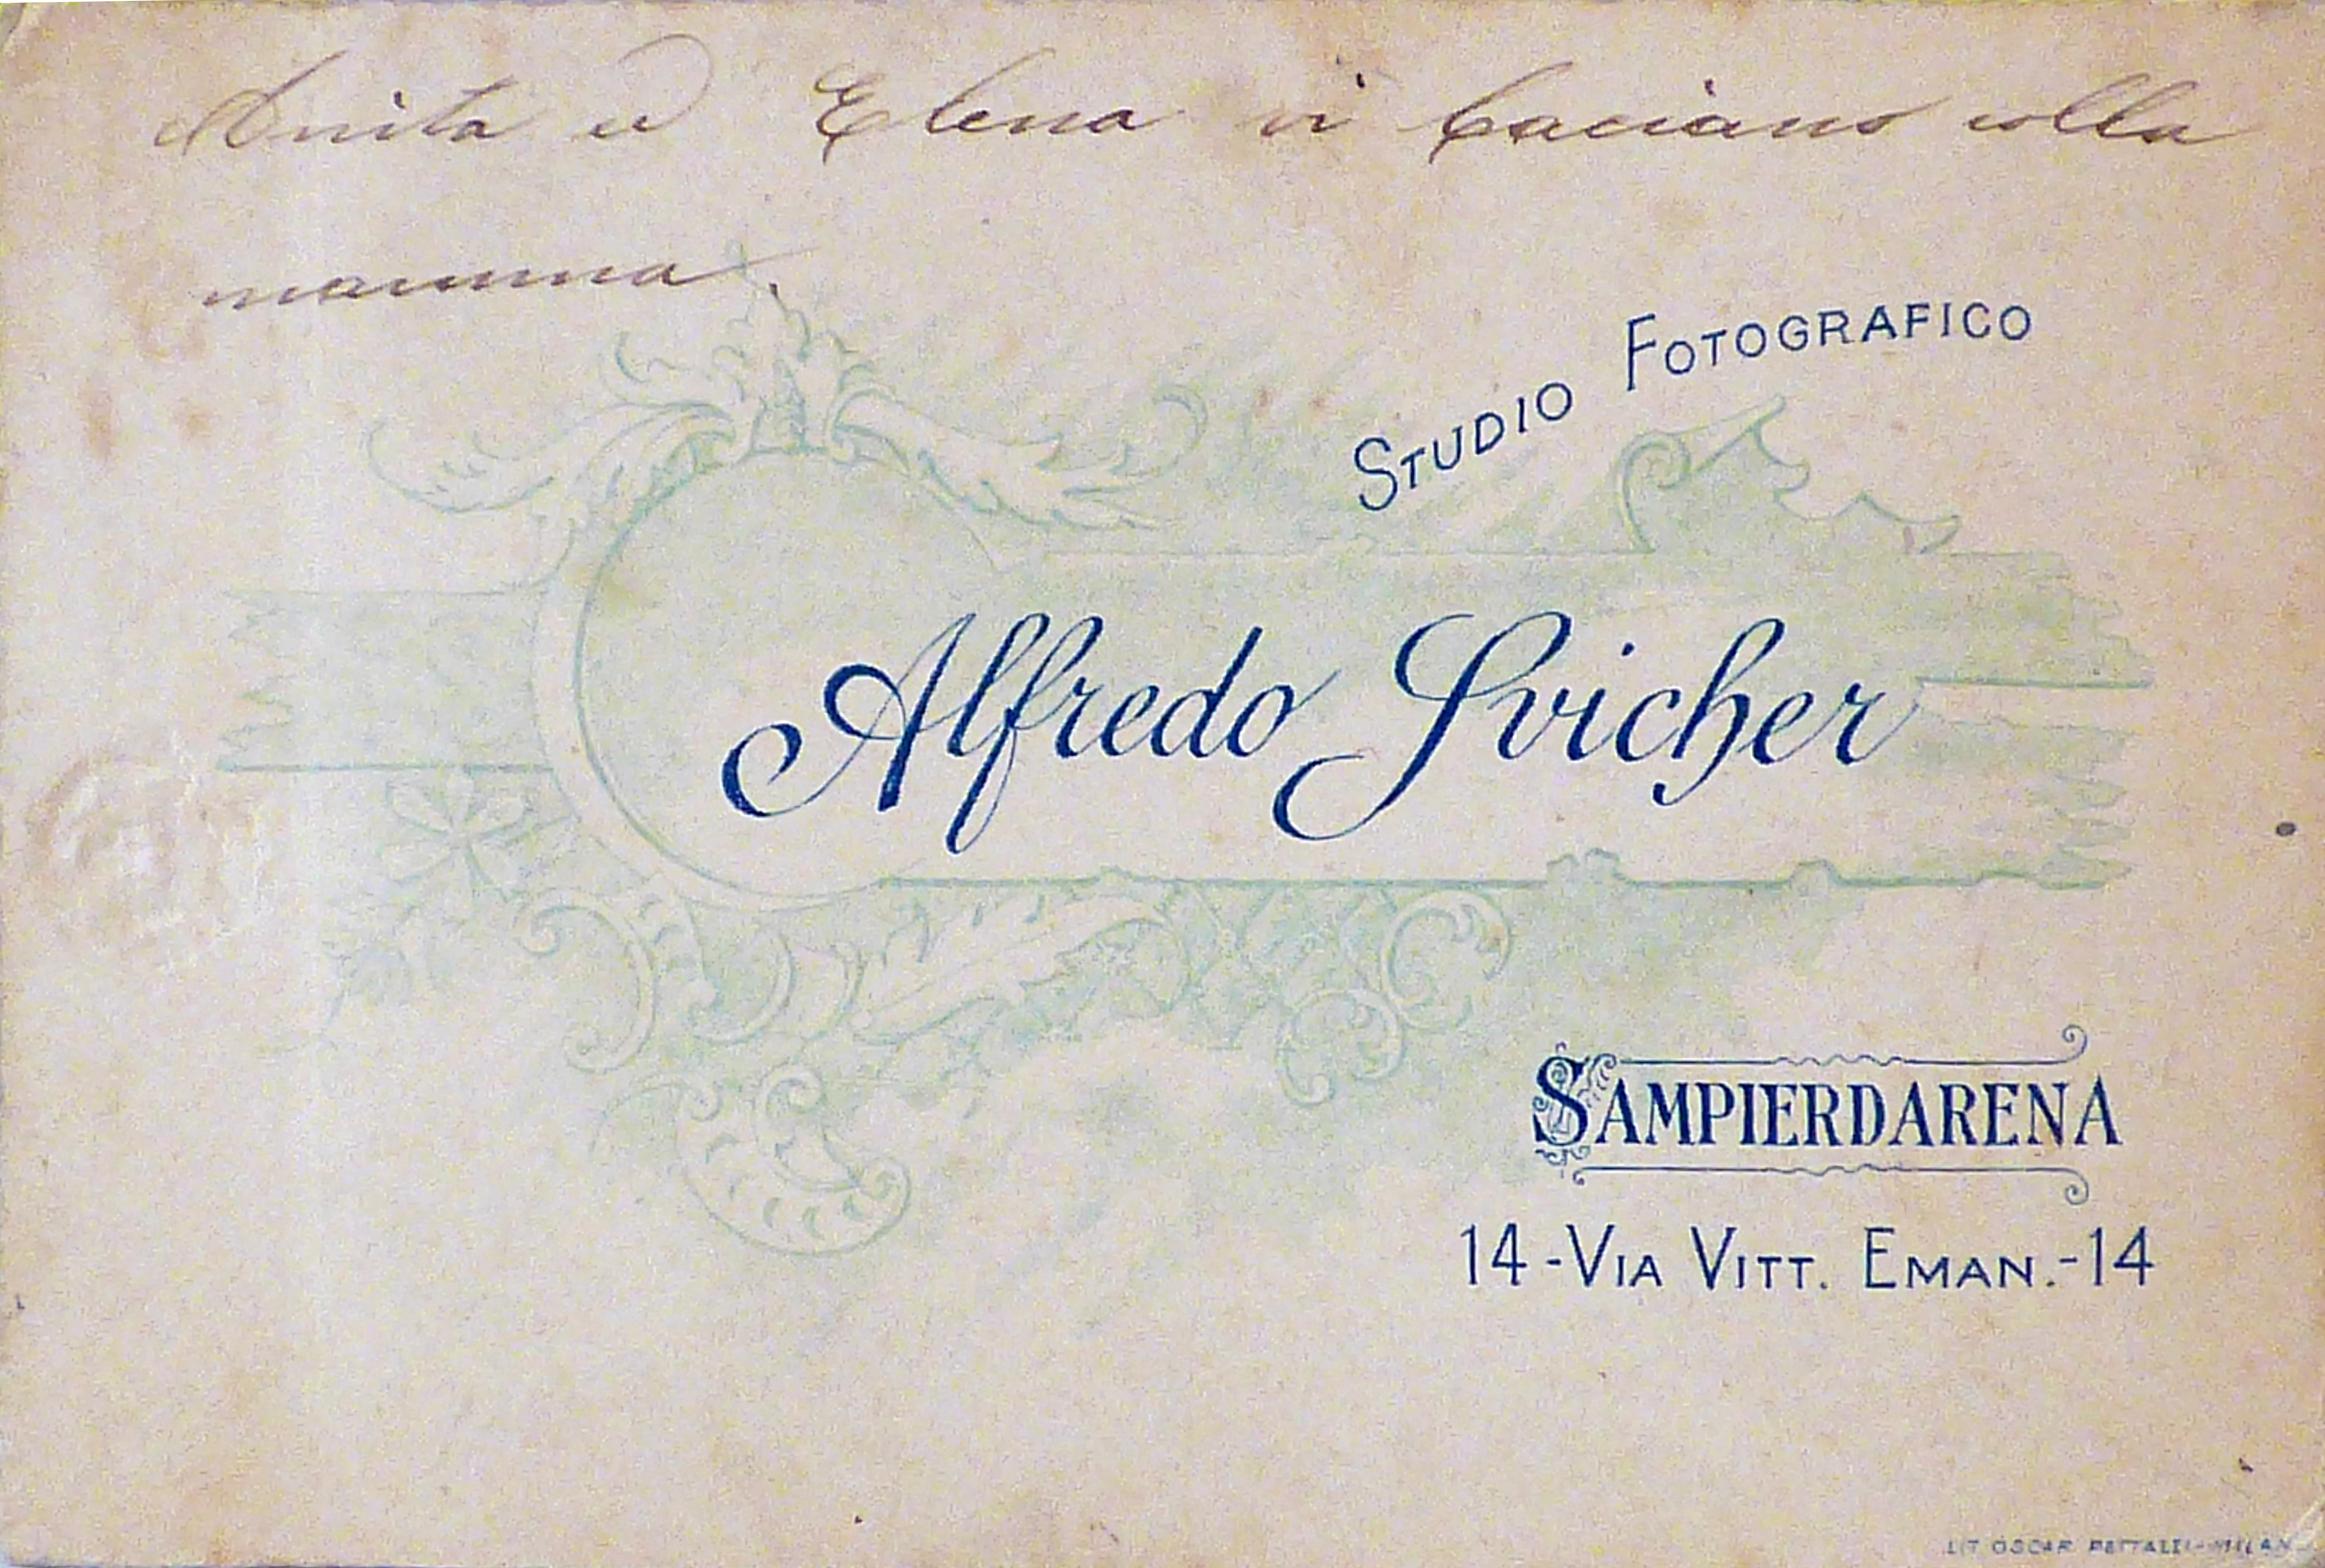 Anita ed Elena vi baciano colla
mamma.
STUDIO FOTOGRAFICO
Alfredo Svicher
SAMPIERDARENA
14-VIA VITT. EMAN.-14
LIT OSCAR PETTAZZI-MILANO